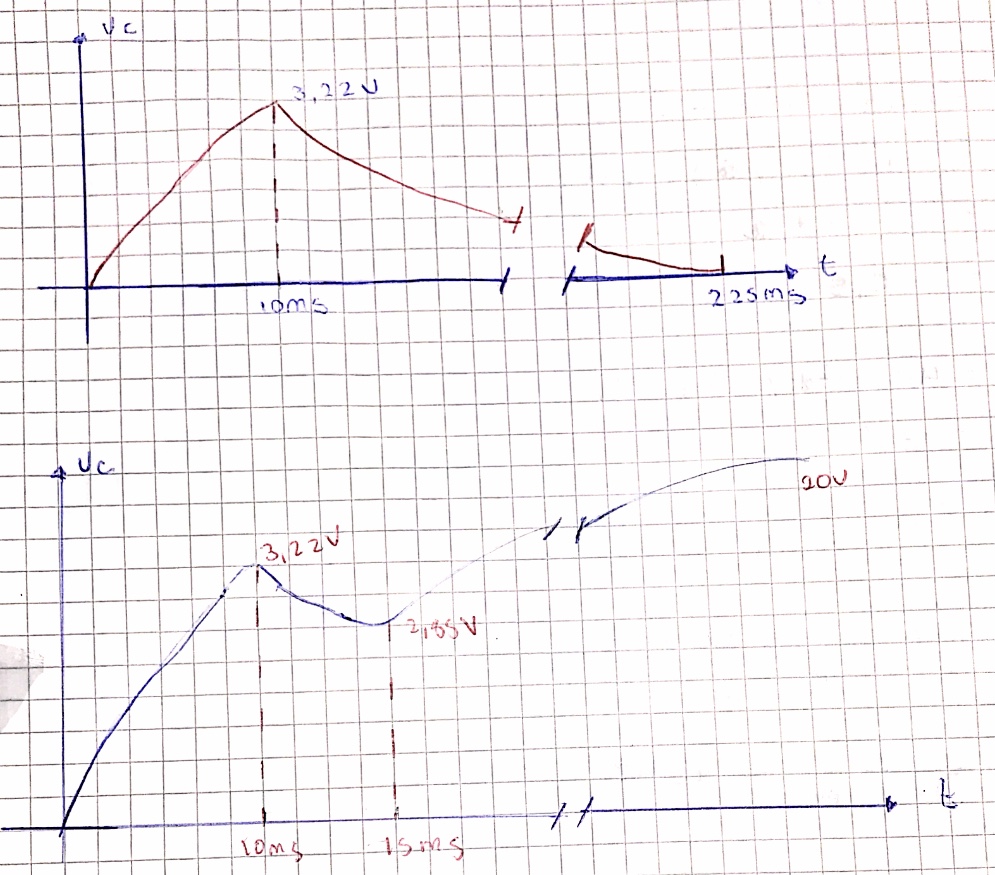 Vc
3,22V
t
10ms
225ms
Vc
3,22V
2,85V
t
10ms
15ms